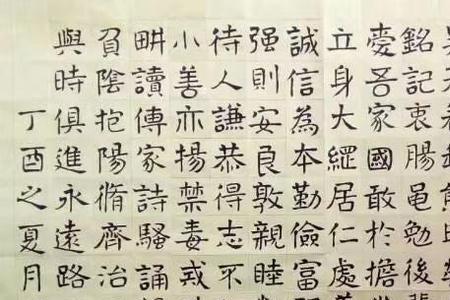 銘記衷腸黽勉後
愛吾家國敢於擔
立身大經居仁處
誠信為本勤儉富
强則安良敦親睦
待人謙恭得志不
小善亦揚禁毒戒
畊讀傳家詩騷誦
負陰抱陽脩齊治
與時俱進永遠路
丁酉之夏月